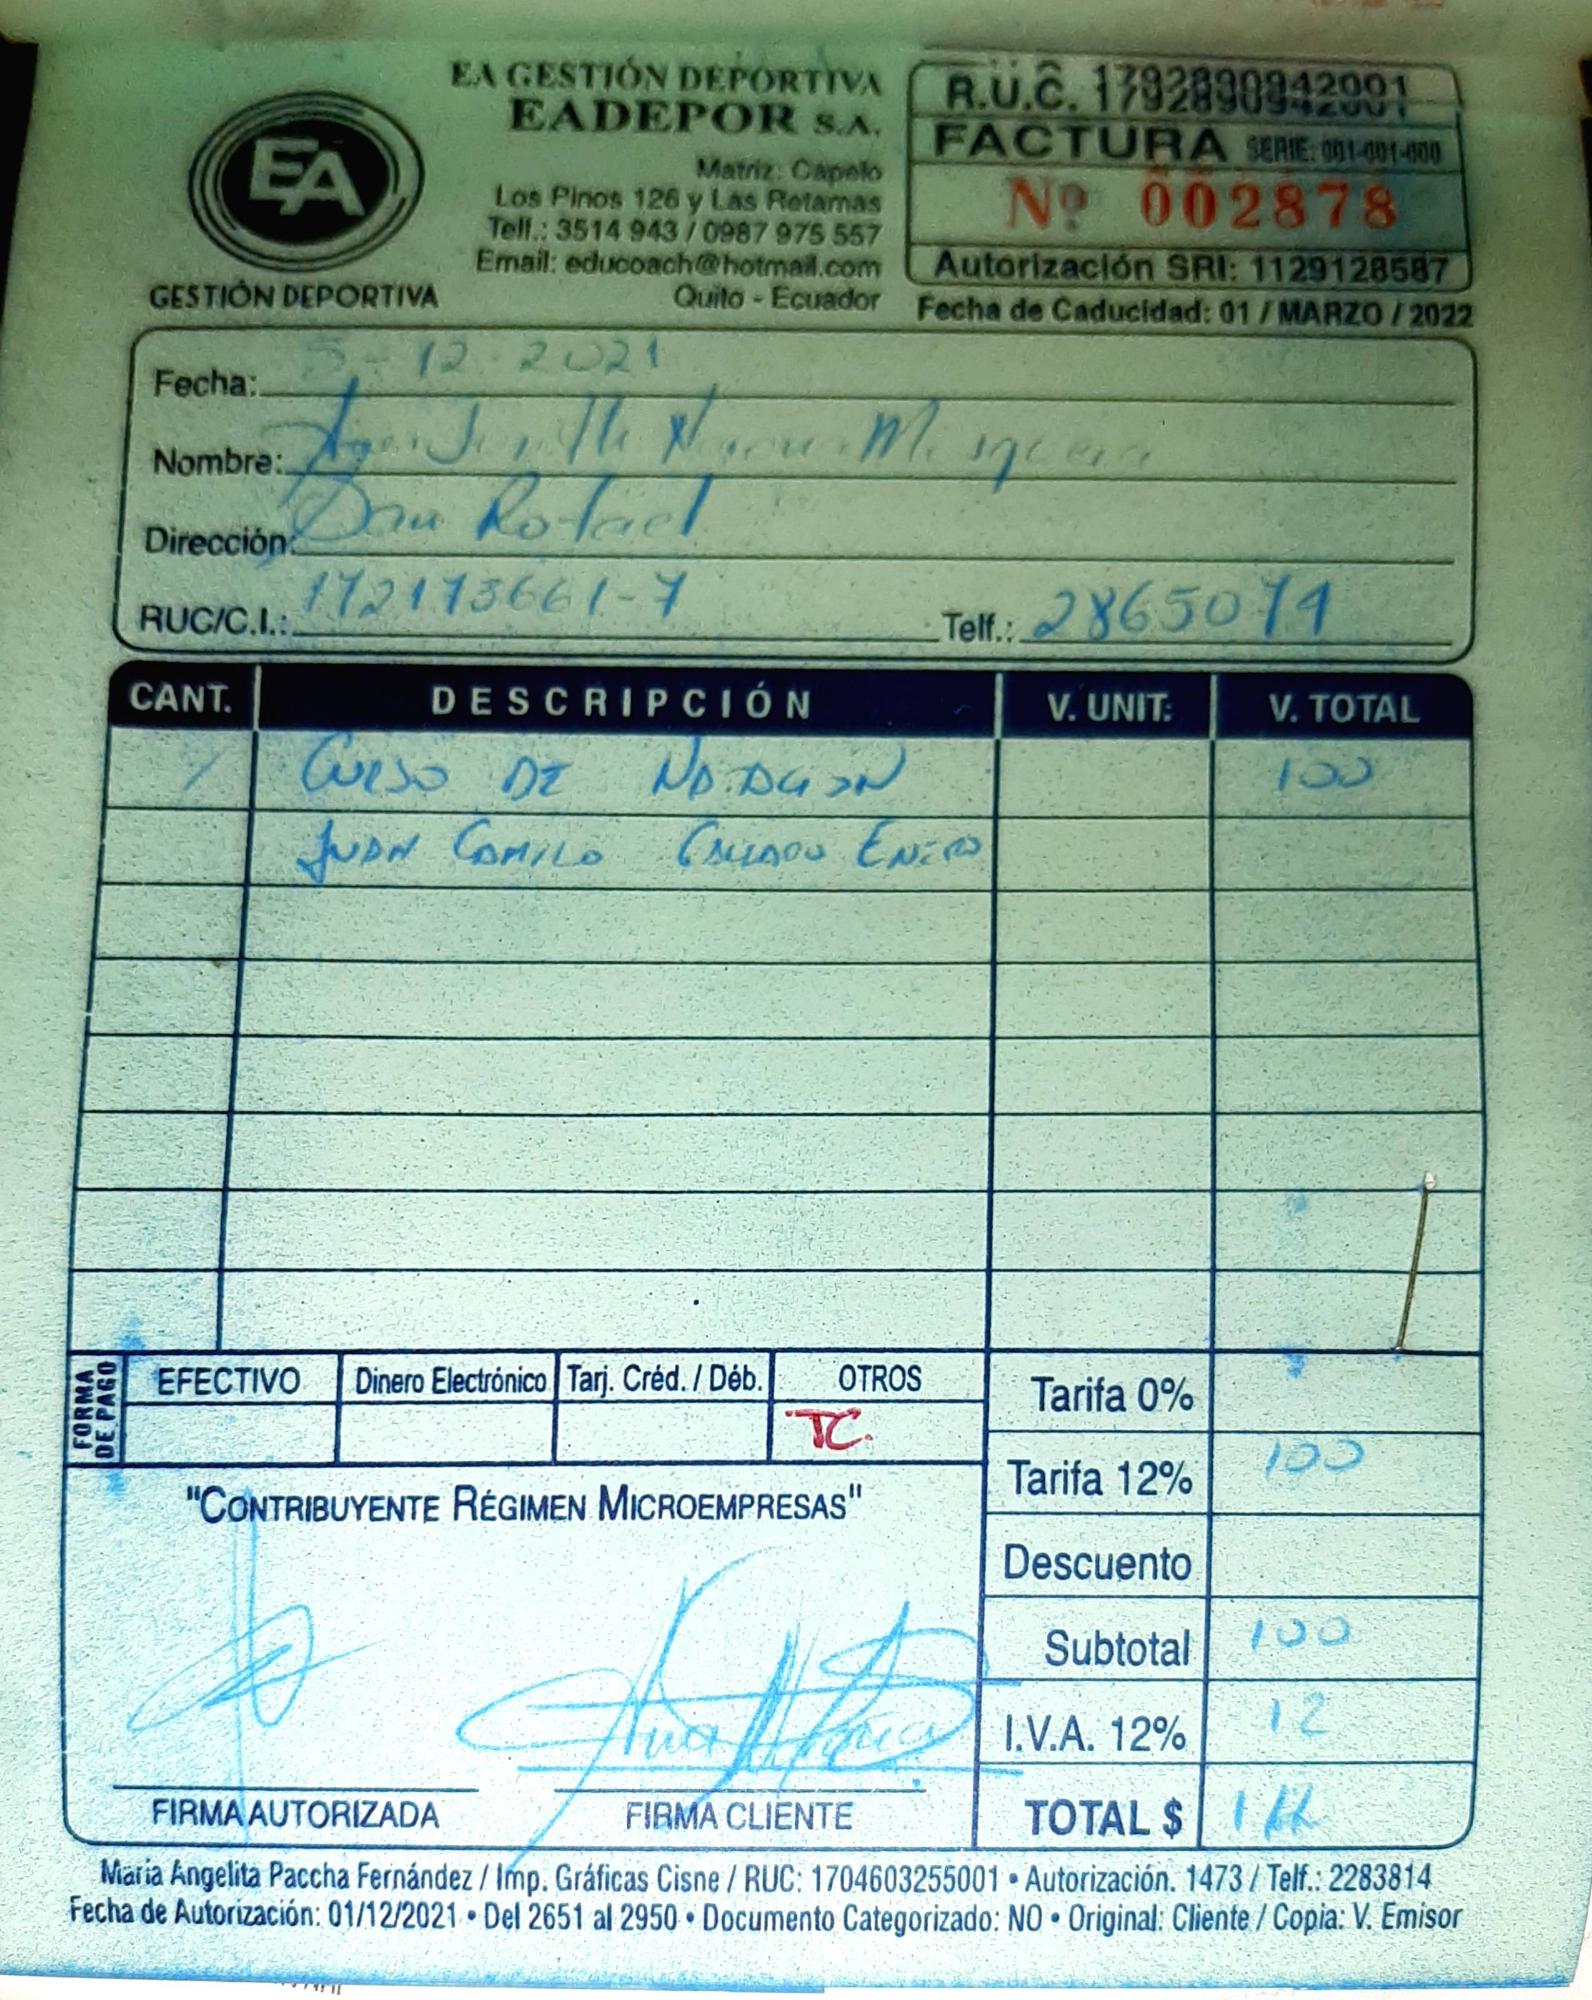 EA GESTIÓN DEPORTIVA
EADEPOR S.A.
Matriz: Capelo
Los Pinos 126 y Las Retamas
Telf.: 3514 943 / 0987 975 557
Email: educoach@hotmail.com
Quito - Ecuador
EA
GESTIÓN DEPORTIVA
R.U.C. 1792890942001
FACTURA SERIE: 001-001-000
Nº 002878
Autorización SRI: 1129128587
Fecha de Caducidad: 01 / MARZO / 2022
Fecha: 5-12-2021
Nombre:
Dirección: San Rafael
RUC/C.I.: 172173661-7 Telf.: 2865079
CANT. DESCRIPCIÓN V. UNIT: V. TOTAL
1 CURSO DE NATACION 100
JUAN CAMILO ENERO
FORMA DE PAGO
EFECTIVO Dinero Electrónico Tarj. Créd. / Déb. OTROS
TC.
Tarifa 0%
Tarifa 12% 100
"CONTRIBUYENTE RÉGIMEN MICROEMPRESAS"
Descuento
Subtotal 100
I.V.A. 12% 12
TOTAL $ 112
FIRMA AUTORIZADA FIRMA CLIENTE
Maria Angelita Paccha Fernández / Imp. Gráficas Cisne / RUC: 1704603255001 • Autorización. 1473 / Telf.: 2283814
Fecha de Autorización: 01/12/2021 • Del 2651 al 2950 • Documento Categorizado: NO • Original: Cliente / Copia: V. Emisor